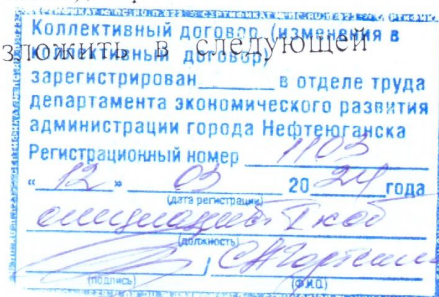 Коллективный договор (изменения в
зложить в следующей
коллективный договор)
зарегистрирован в отделе труда
департамента экономического развития
администрации города Нефтеюганска
Регистрационный номер 1103
« 12 » 03 20 24 года
(дата регистрации)
специалист I кат
(должность)
/
(подпись) (Ф.И.О.)